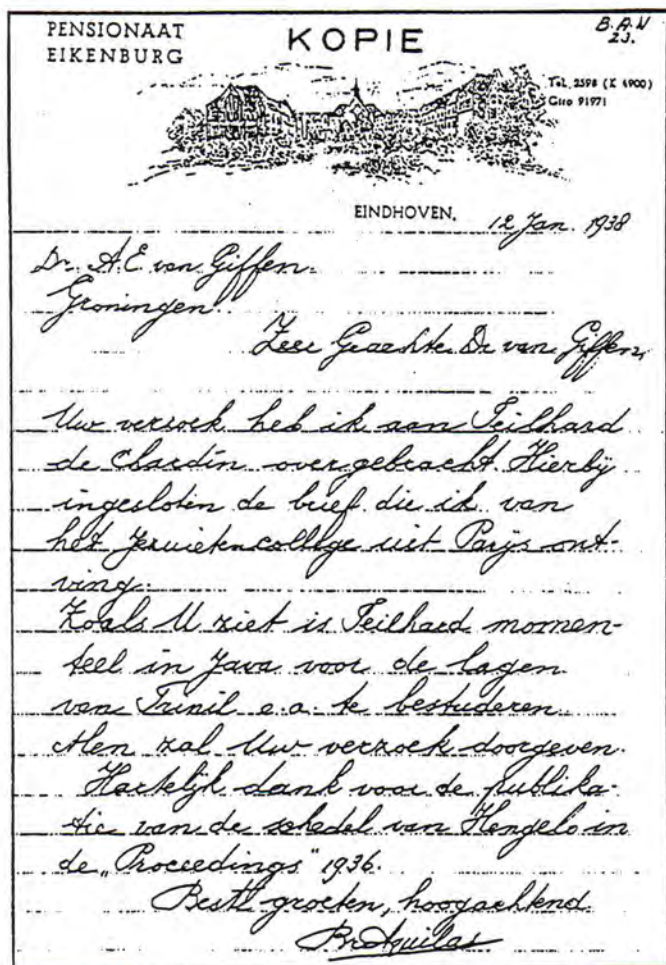 PENSIONAAT
EIKENBURG
KOPIE
B.A.N
23.
Tel. 2598 (K 4900)
Giro 91971
EINDHOVEN, 12 Jan. 1938
Dr. A.E. van Giffen.
Groningen.
Zeer Geachte Dr. van Giffen,
Uw verzoek heb ik aan Teilhard
de Chardin overgebracht. Hierbij
ingesloten de brief die ik van
het Jezuietencollege uit Parijs ont-
ving.
Zoals U ziet is Teilhard momen-
teel in Java voor de lagen
van Trinil e.a. te bestuderen.
Men zal Uw verzoek doorgeven.
Hartelijk dank voor de publika-
tie van de schedel van Hengelo in
de „Proceedings" 1936.
Bestl groeten, hoogachtend
Br Aquilas